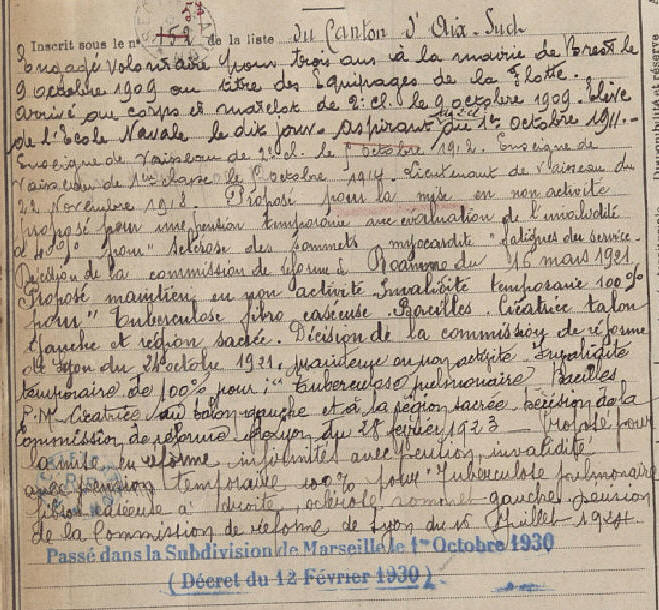 Inscrit sous le n° 152 de la liste du Canton d'Aix-Sud
Engagé volontaire pour trois ans à la mairie de Brest le
9 octobre 1909 au titre des Equipages de la Flotte.
Arrivé au corps et matelot de 2e cl. le 9 octobre 1909. Elève
de l'Ecole Navale le dit jour. Aspirant du 1er octobre 1911.
Enseigne de Vaisseau de 2e cl. le 5 octobre 1912. Enseigne de
Vaisseau de 1ère classe le octobre 1914. Lieutenant de Vaisseau du
22 Novembre 1918. Proposé pour la mise en non activité
proposé pour une pension temporaire avec évaluation de l'invalidité
à 40% pour "sclérose des sommets myocardite" fatigues du service.
Décision de la commission de réforme de Roanne du 16 mars 1921.
Proposé maintien en non activité Invalidité temporaire 100%
pour "tuberculose fibro caseuse. Bacilles. Cicatrice talon
gauche et région sacrée. Décision de la commission de réforme
de Lyon du 21 octobre 1921. maintenu en non activité. Invalidité
temporaire de 100% pour: "tuberculose pulmonaire Bacilles
Cicatrice du talon gauche et à la région sacrée. Décision de la
Commission de réforme de Lyon du 28 février 1923 Proposé pour
la mise en réforme infirmités avec pension, invalidité
avec pension temporaire 100% pour "Tuberculose pulmonaire
fibro caséeuse à droite, sclérose sommet gauche. pension
de la Commission de réforme de Lyon du 15 Juillet 1924.
Passé dans la Subdivision de Marseille le 1er Octobre 1930
(Décret du 12 Février 1930)